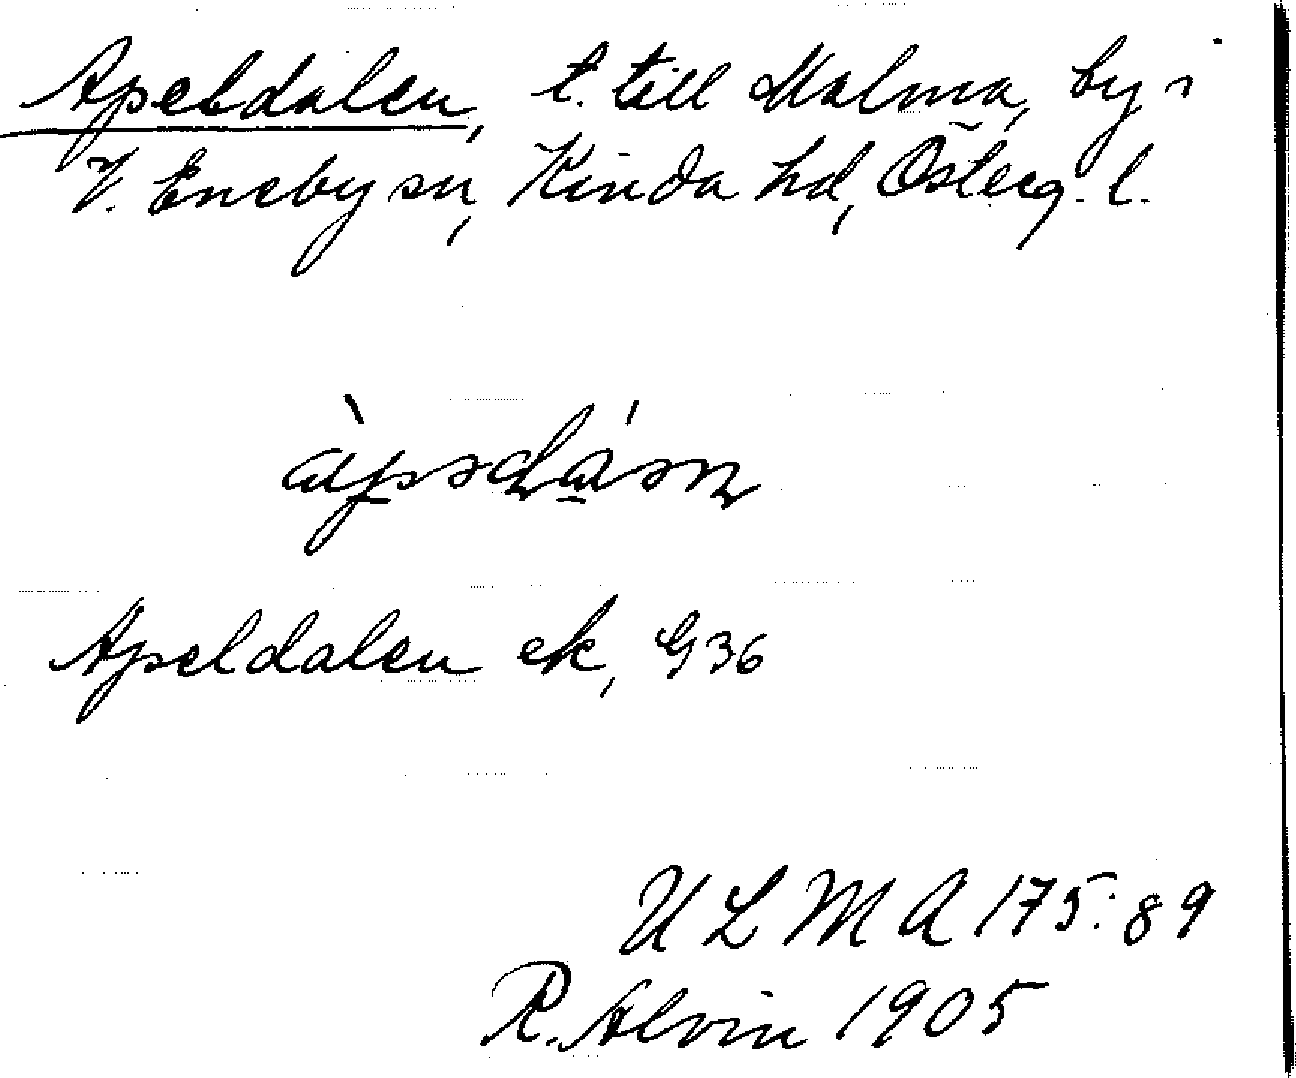 Apeldalen, t. till Malma, by i
V. Eneby sn, Kinda hd, Österg. l.
Apeldalen ek, G36
ULMA 175:89
R. Alvin 1905